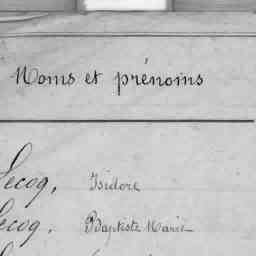 Noms et prénoms
Lecoq, Isidore
Lecoq. Baptiste Marie